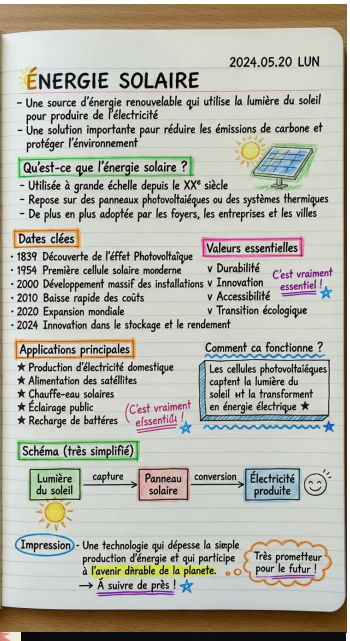 2024.05.20 LUN
ÉNERGIE SOLAIRE
- Une source d'énergie renouvelable qui utilise la lumière du soleil
pour produire de l'électricité
- Une solution importante paur réduire les émissions de carbone et
protéger l'énvironnement
Qu'est-ce que l'énergie solaire ?
- Utilisée à grande échelle depuis le XXe siècle
- Repose sur des panneaux photovoltaiéques ou des systèmes thermiques
- De plus en plus adoptée par les foyers, les entreprises et les villes
Dates clées
• 1839 Découverte de l'éffet Photovoltaïque
• 1954 Première cellule solaire moderne
• 2000 Développement massif des installations
• 2010 Baisse rapide des coûts
• 2020 Expansion mondiale
• 2024 Innovation dans le stockage et le rendement
Valeurs essentielles
v Durabilité
v Innovation
v Accessibilité
v Transition écologique
C'est vraiment
essentiel !
Applications principales
★ Production d'électricité domestique
★ Alimentation des satéllites
★ Chauffe-eau solaires
★ Éclairage public
★ Recharge de battéres
(C'est vraiment
Comment ca fonctionne ?
Les cellules photovoltaiéques
captent la lumière du
soleil et la transforment
en énergie électrique ★
Schéma (très simplifié)
Lumière
du soleil
capture
Panneau
solaire
conversion
Électricité
produite
Impression
- Une technologie qui dépesse la simple
production d'énergie et qui participe
à l'avenir de la planete.
→ Á suivre de près !
Très prometteur
pour le futur !